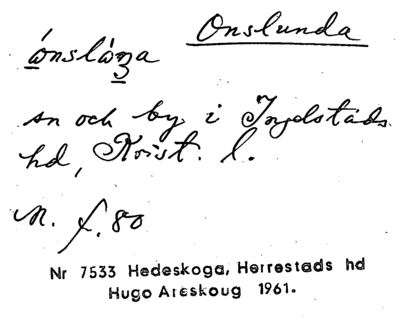 Onslunda
ònslòna
sn och by i Ingelstads
hd, Krist. l.
M. f. 80
Nr 7533 Hedeskoga, Herrestads hd
Hugo Areskoug 1961.